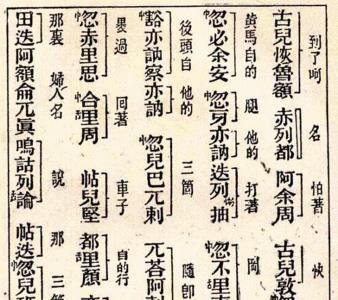 到了呵 名 怕著 快
古兒恢魯額 赤列都 阿余周 古兒敦
黃馬自的 腿 他的 打著 岡
中忽必余安 中忽牙亦訥 迭列抽 中忽不里
後頭自 他的 三箇 隨即
中豁亦訥察亦訥 中忽兒巴兀剌 兀荅阿剌
過 回著 車子 自的行
中忽赤里思 中合里周 帖兒堅 都里顏
那裏 婦人名 說 那 三箇
田迭阿額侖兀真嗚詁列論 帖迭中忽兒班